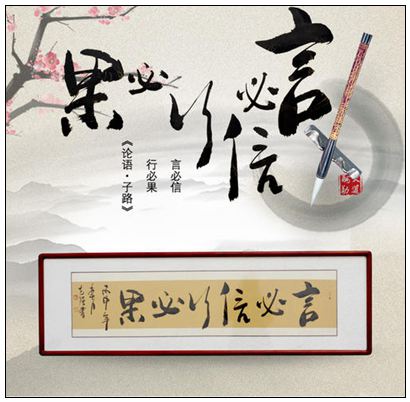 言必信行必果
言必信
行必果
《论语·子路》
言必信行必果
丙申年